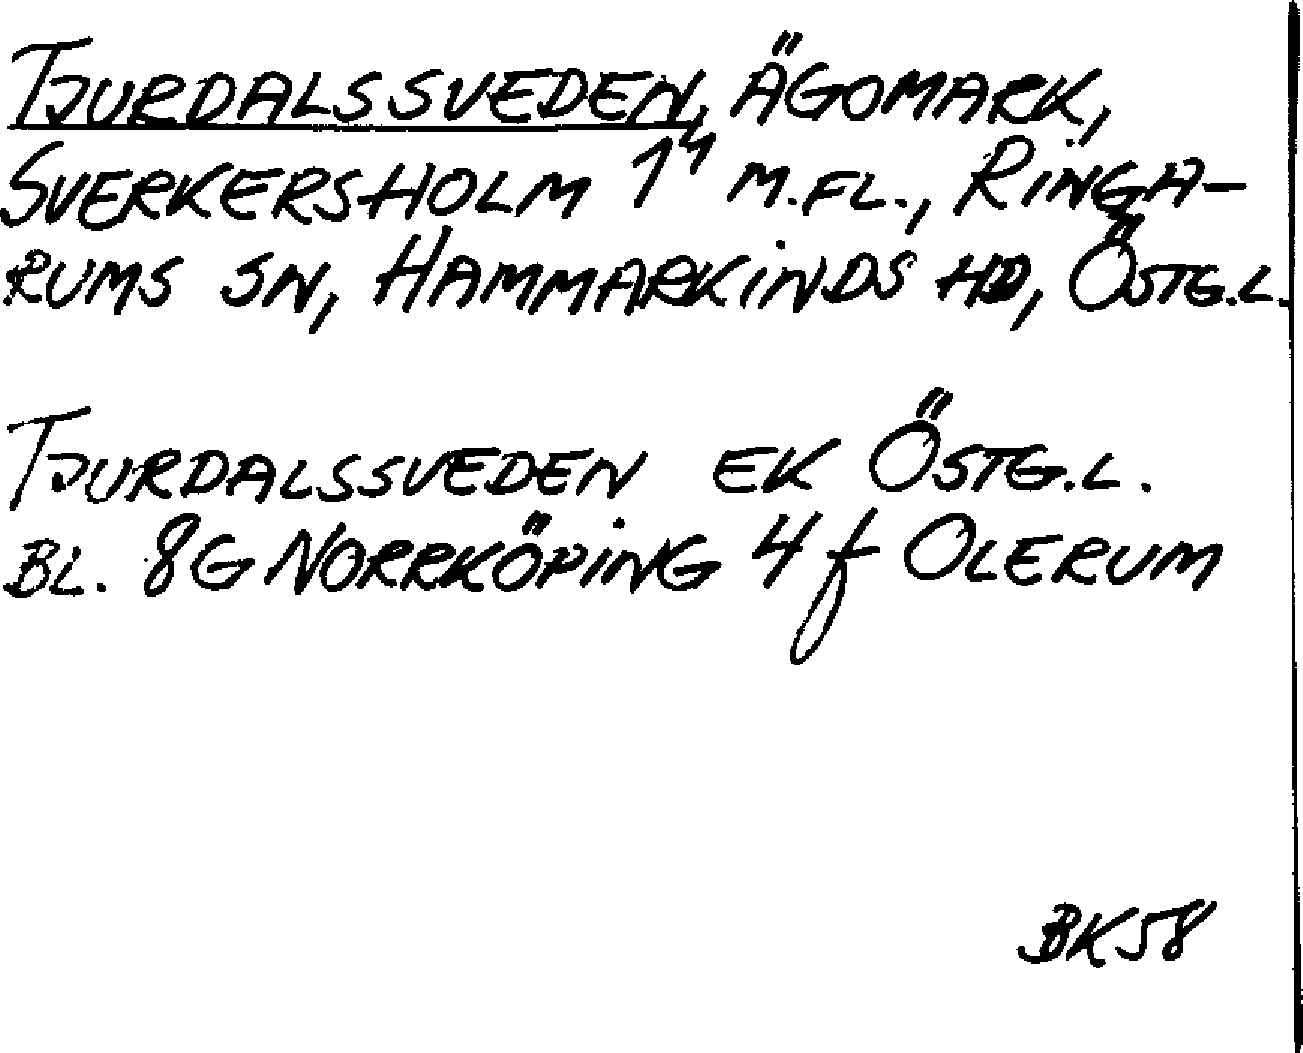 TJURDALSSVEDEN, ÄGOMARK,
SVERKERSHOLM 1⁴ M.FL., RINGA-
RUMS SN, HAMMARKINDS HD, ÖSTG.L.
TJURDALSSVEDEN EK ÖSTG.L.
BL. 8G NORRKÖPING 4f OLERUM
BK58